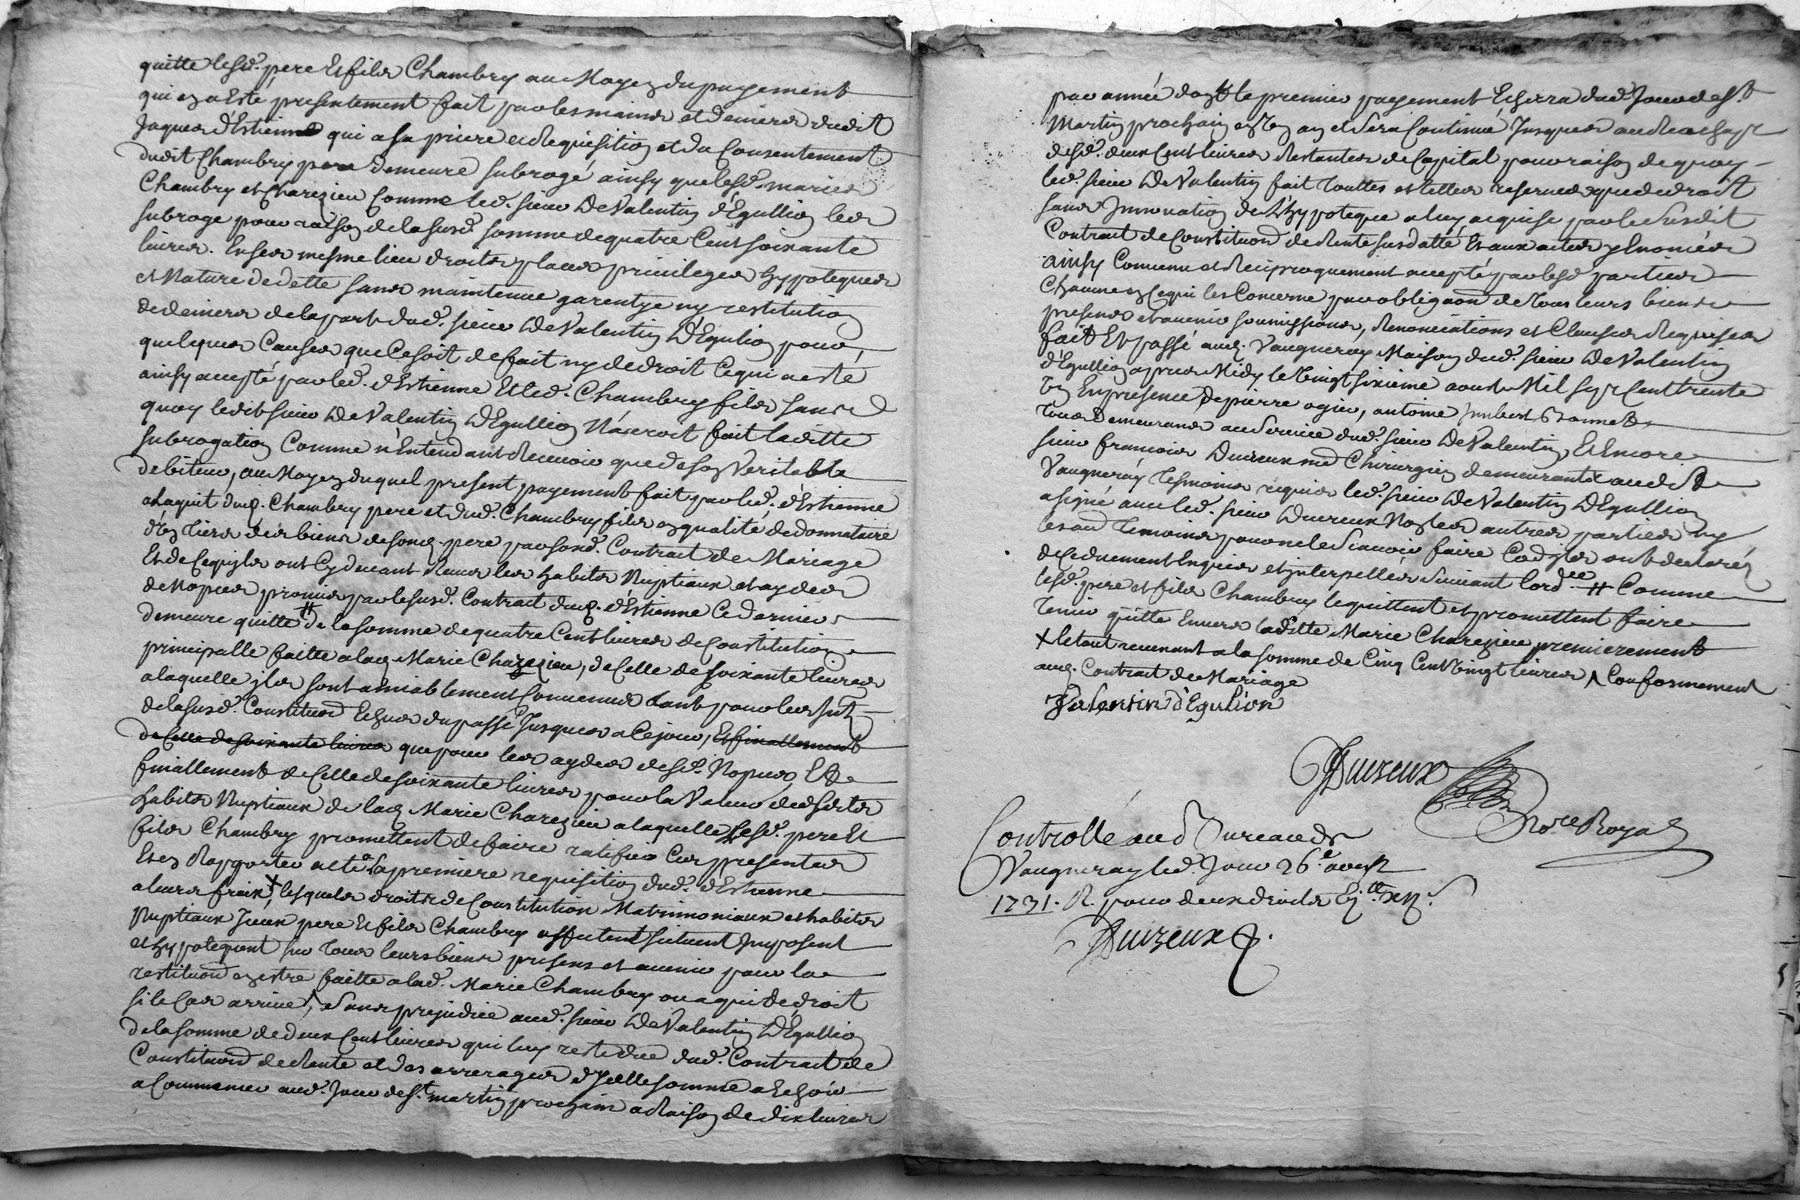 quitte lesd. pere et fils Chambry au moyen du payement
qui en a Esté presentement fait par les mains et deniers dudit
Jaques d'Estienne qui a sa priere et Requisition et du Consentement
dudit Chambry pere demeure subrogé ainsy que lesd. maries
Chambry et Charezieu Comme led. sieur De Valentin d'Egullion les
subroge pour raison de la susd. somme de quatre Cent soixante
livres. En ses mesme lieu droits places privileges hypoteques
et Nature de dette sans maintenue garentye ny restitution
de deniers de la part dud. sieur De Valentin D'Egulion pour
quelques Causes que Ce soit de fait ny de droit Ce qui a esté
ainsy accepté par led. d'Estienne Et led. Chambry fils sans
quoy ledit sieur De Valentin D'Egullion N'auroit fait laditte
subrogation Comme n'Entendant Recevoir que de son Veritable
debiteur, au Moyen duquel present payement fait par led. d'Estienne
a l'aquit dud. Chambry pere et dud. Chambry fils en qualité de donnataire
d'un tiers des biens de sond. pere par sond. Contrat de Mariage
Et de Ce qu'ils ont Cy devant Receu les habits Nuptiaux et aydes
de Nopces promis par le susd. Contrat dud. d'Estienne Ce dernier
demeure quitte # de la somme de quatre Cent livres de Constitution
principalle faitte a lad. Marie Charezieu, de Celle de soixante livres
a laquelle ils sont amiablement Convenus tant pour les fruits
de la susd. Constitution Echus du passé Jusques a Ce jour, Et finallement
de Celle de soixante livres que pour les aydes desd. Nopces Et
finallement de Celle de soixante livres pour la Valeur desdits
habits Nuptiaux de lad. Marie Charezieu a laquelle lesd. pere Et
fils Chambry promettent de faire ratifier Ces presentes
Et en Rapporter acte a la premiere requisition dud. d'Estienne
a leurs fraix + lesquels droits de Constitution Matrimoniaux et habits
Nuptiaux Iceux pere Et fils Chambry assutent situent Imposent
et hypotequent sur Tous leurs biens presens et avenir pour la
restitution en estre faitte a lad. Marie Chambry ou a qui de droit
si le Cas arrive, sans prejudice aud. sieur De Valentin D'Egullion
de la somme de deux Cent livres qui luy reste due dud. Contrat de
Constitution de Rente et des arrerages d'Icelle somme a Echoir
a Commencer aud. Jour de St. martin prochain a Raison de dix livres
par année dont le premier payement Echerra dud. Jour de St.
Martin prochain en un an et sera Continué Jusques au Rachapt
desd. deux Cent livres Restantes de Capital pour raison de quoy
led. sieur De Valentin fait Touttes et telles reserves que de droit
sans Innovation de l'hypoteque a luy acquise par le susdit
Contrat de Constitution de Rente susdatté Et aux actes y Enoncés
ainsy Convenu et Reciproquement accepté par lesd. parties
Chacune en Ce qui les Concerne par obligation de Tous leurs biens
presens et avenir soumissions, Renonciations et Clauses Requises
fait Et passé aud. Vaugneray Maison dud. sieur De Valentin
d'Egullion apres Midy le Vingt sixieme aoust Mil sept Cent trente
un En presence de pierre ogier, antoine Jmbert Bonnet
Tous Demeurans au service dud. sieur De Valentin, Et Encore
sieur francois Duireux md Chirurgien demeurants audit
Vaugneray Tesmoins requis led. sieur De Valentin D'Egullion
a signé avec led. sieur Duireux Non les autres parties ny
lesd Temoins pour ne le scavoir faire Comme ils ont declaré
de Ce duement Enquis et Interpellés suivant l'ord.ce # Comme
lesd. pere et fils Chambry le quittent et promettent faire
Tenir quitte Envers laditte Marie Charezieu premierement
+ le tout revenant a la somme de Cinq Cent Vingt livres ^ Conformement
aud. Contrat de Mariage
Valentin d'Egulion
Duireux
Nore Royal
Controllé aud Bureau de
Vaugneray led. Jour 26.e aoust
1731. R. pour deux droits
Duireux